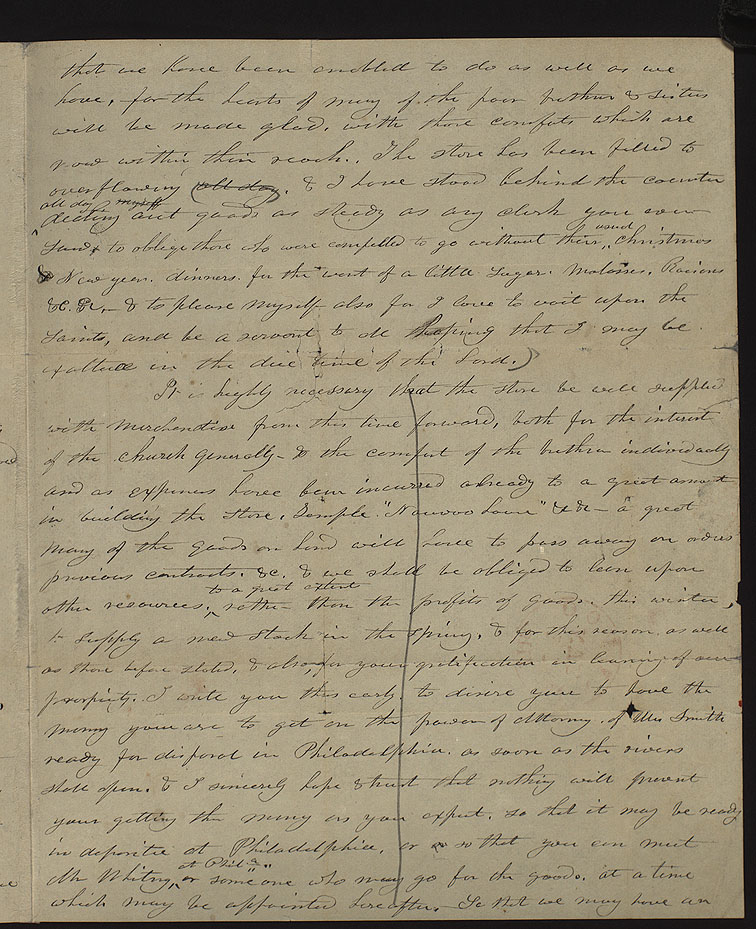 that we have been enabled to do as well as we
have, for the hearts of many of the poor brethren & sisters
will be made glad, with those comforts which are
now within their reach. The store has been filled to
overflowing all day. & I have stood behind the counter
all day myself
dealing out goods as steady as any clerk you ever
saw, to oblige those who were compelled to go without their usual Christmas
& New year. dinners. for the want of a little Sugar. Molasses. Raisens
&C. &c,— & to please myself also for I love to wait upon the
Saints, and be a servant to all hoping that I may be
exalted in the due time of the Lord.)
It is highly necessary that the store be well supplied
with merchandise from this time forward, both for the interest
of the church generally— & the comfort of the brethren individually
and as expenses have been incurred already to a great amount
in building the store, Temple. "Nauvoo house" &c &c— a great
many of the goods on hand will have to pass away on orders
previous contracts. &c. & we shall be obliged to lean upon
to a great extent
other resources, rather than the profits of goods. this winter,
to supply a new stock in the spring, & for this reason. as well
as those before stated, & also, for your gratification in learning of our
prosperity. I write you this early to desire you to have the
money you are to get on the power of attorney. of Mrs Smith
ready for disposal in Philadelphia. as soon as the rivers
shall open. & I sincerely hope & trust that nothing will prevent
your getting the money as you expect. so that it may be ready
in deposite at Philadelphia, or so that you can meet
Mr Whitney, at Phila. or some one who may go for the goods. at a time
which may be appointed hereafter. So that we may have an